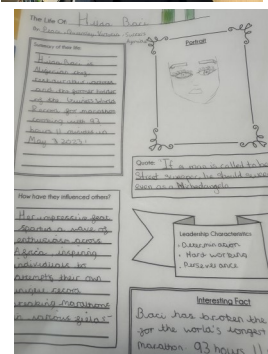 The Life Of: Hilda Baci
By:
Summary of their life:
Hilda Baci is
Nigerian
and the former holder
of the Guinness World
Record for marathon
cooking with 93
hours 11 minutes in
May
Portrait
Quote: "If a man is called to be
Street sweeper, he should sweep
even as a Michelangelo
How have they influenced others?
Her impressive feat
sparked a wave of
enthusiasm across
Africa, inspiring
individuals to
attempt their own
unique record
breaking marathons
in various fields.
Leadership Characteristics
• Determination
• Hard working
• Perseverance
Interesting Fact
Baci has broken the
for the world's longest
marathon 93 hours 11